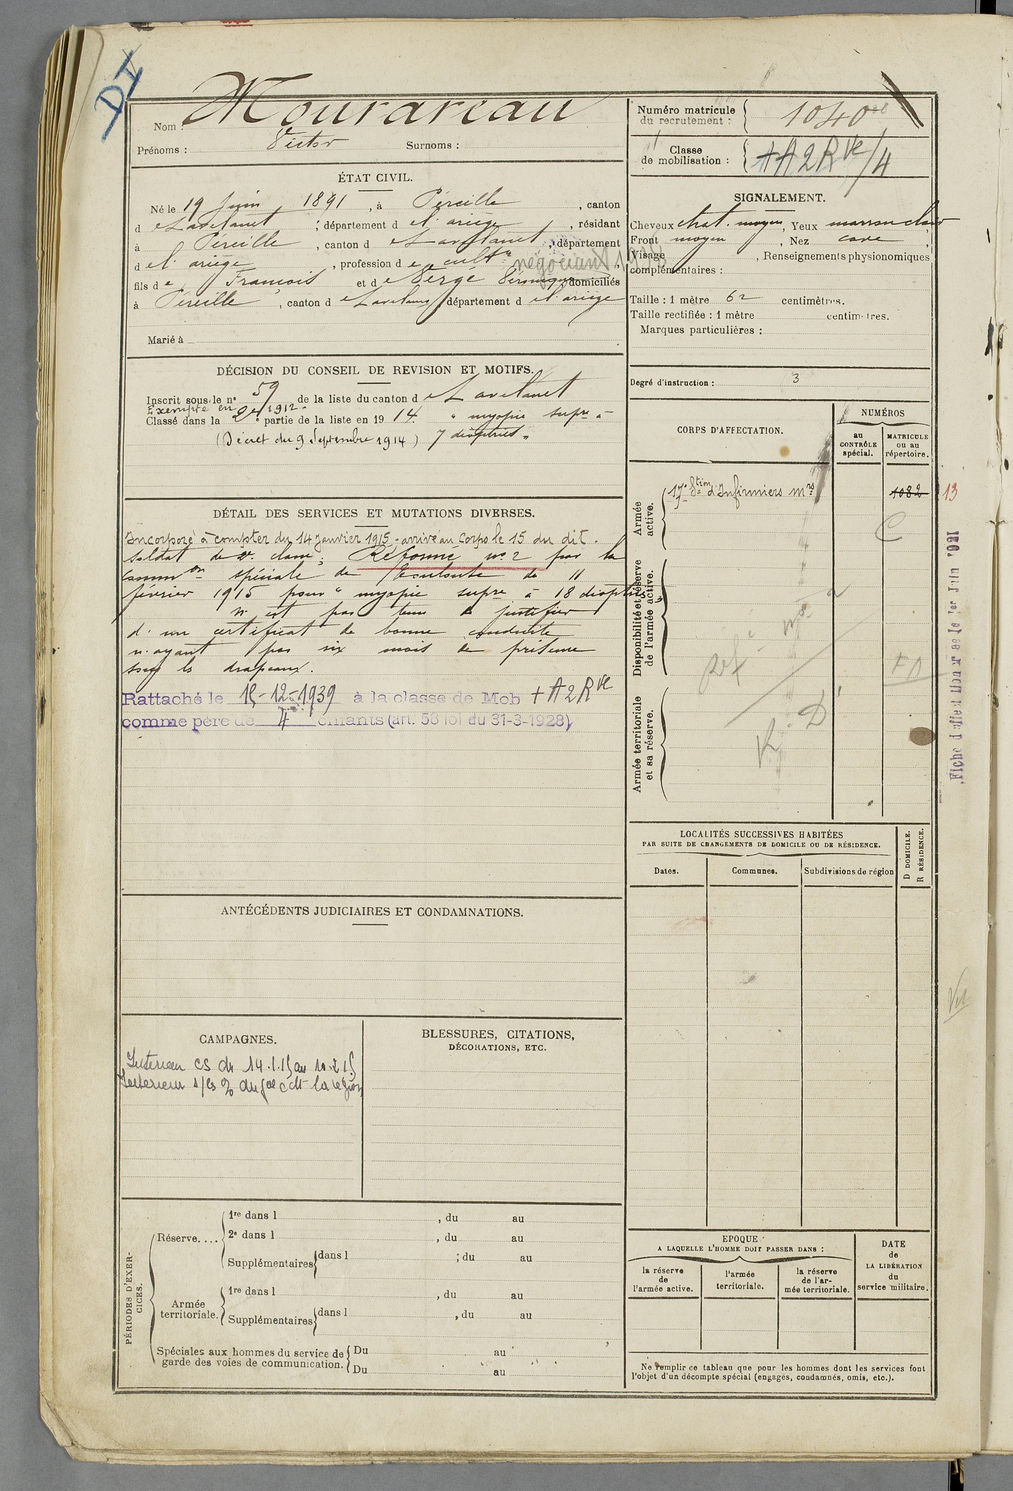 DI
Nom : Mourareau
Prénoms : Victor Surnoms :
Numéro matricule du recrutement : 1040
Classe de mobilisation : +A2Rve/4
ÉTAT CIVIL.
Né le 19 Juin 1891, à Péreille, canton
d e Lavelanet ; département d e l'ariège, résidant
à Péreille, canton d e Lavelanet, département
d e l'ariège, profession d e cultr négociant 1913
fils d e Francois et d e Vergé domiciliés
à Péreille, canton d e Lavelanet département d e l'ariège
Marié à
SIGNALEMENT.
Cheveux chat. moyen, Yeux marron clair
Front moyen, Nez cave,
Visage , Renseignements physionomiques
complémentaires :
Taille : 1 mètre 62 centimètres.
Taille rectifiée : 1 mètre centimètres.
Marques particulières :
Degré d'instruction : 3
DÉCISION DU CONSEIL DE REVISION ET MOTIFS.
Inscrit sous le n° 59 de la liste du canton d e Lavelanet
Exempté en 1912.
Classé dans la 2e partie de la liste en 1914 " myopie supre à
(Décret du 9 Septembre 1914) 7 dioptries "
DÉTAIL DES SERVICES ET MUTATIONS DIVERSES.
Incorporé à compter du 14 janvier 1915, arrivé au Corps le 15 du dit.
Soldat de 2e classe. Réformé n° 2 par la
Common spéciale de Toulouse du 11
février 1915 pour " myopie supre à 18 dioptries
N'est pas tenu de justifier
d'un certificat de bonne conduite
n'ayant pas six mois de présence
sous les drapeaux.
Rattaché le 15-12-1939 à la classe de Mob +A2Rve
comme père de 4 enfants (art. 58 loi du 31-3-1928)
CORPS D'AFFECTATION.
NUMÉROS
au CONTRÔLE spécial.
MATRICULE ou au répertoire.
Armée active.
17e Stion d'Infirmiers mres
1082
13
C
Disponibilité et réserve de l'armée active.
Réf. n° 2
+D
Armée territoriale et sa réserve.
R. D
LOCALITÉS SUCCESSIVES HABITÉES
PAR SUITE DE CHANGEMENTS DE DOMICILE OU DE RÉSIDENCE.
Dates.
Communes.
Subdivisions de région
D DOMICILE.
R RÉSIDENCE.
ANTÉCÉDENTS JUDICIAIRES ET CONDAMNATIONS.
CAMPAGNES.
Intérieur CS du 14.1.15 au 10.2.15
BLESSURES, CITATIONS,
DÉCORATIONS, ETC.
PÉRIODES D'EXERCICES.
Réserve....
1re dans l , du au
2e dans l , du au
Supplémentaires dans l ; du au
Armée territoriale.
1re dans l , du au
Supplémentaires dans l , du au
Spéciales aux hommes du service de garde des voies de communication.
Du au
Du au
EPOQUE
A LAQUELLE L'HOMME DOIT PASSER DANS :
la réserve de l'armée active.
l'armée territoriale.
la réserve de l'armée territoriale.
DATE de LA LIBÉRATION du service militaire.
Ne remplir ce tableau que pour les hommes dont les services font
l'objet d'un décompte spécial (engagés, condamnés, omis, etc.).